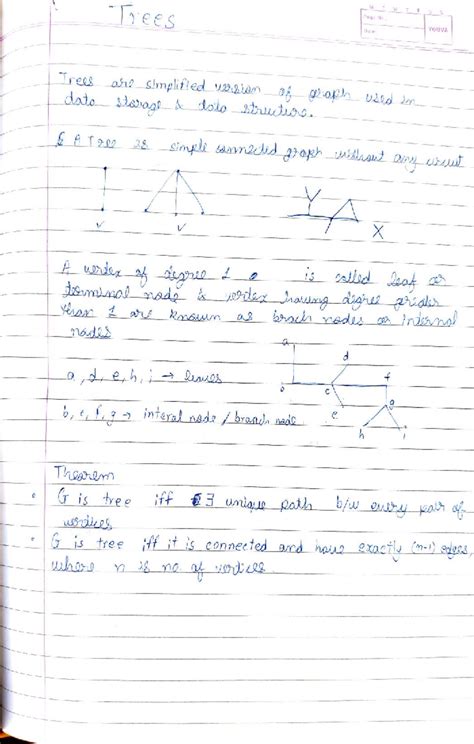 Trees
YOUVA
Trees are simplified version of graph used in
data storage & data structure.
A Tree is simple connected graph without any circuit
✓ ✓ X
A vertex of degree 1 is called leaf or
terminal node & vertex having degree greater
than 1 are known as brach nodes or internal
nodes
a, d, e, h, i → leaves
b, c, f, g → interal node / branch node
a
d
b c f
e g
h i
Theorem
G is tree iff ∃ unique path b/w every pair of
vertices
G is tree iff it is connected and have exactly (n-1) edges,
where n is no of vertices